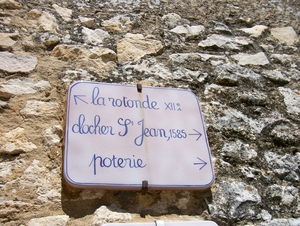 la rotonde XIIe
clocher St Jean, 1585
poterie